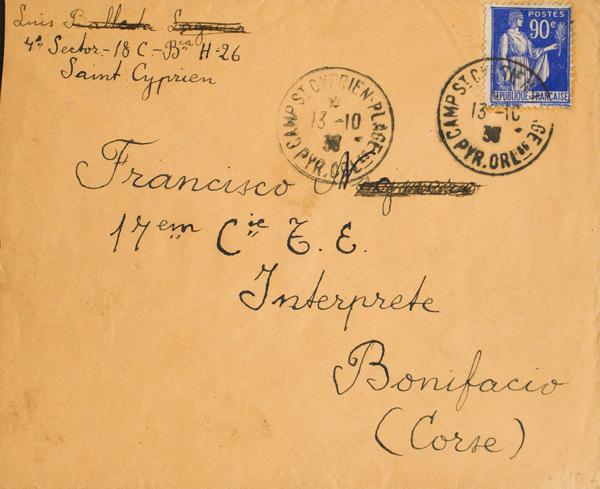 Luis
4º Sector - 18 C - Bca H-26
Saint Cyprien
POSTES
90c
REPUBLIQUE FRANÇAISE
CAMP ST CYPRIEN-PLAGE
13 -10
PYR. ORLES
CAMP ST CYPRIEN-PLAGE
13 -10
PYR. ORLES
Francisco
17em Cie T. E.
Interprete
Bonifacio
(Corse)